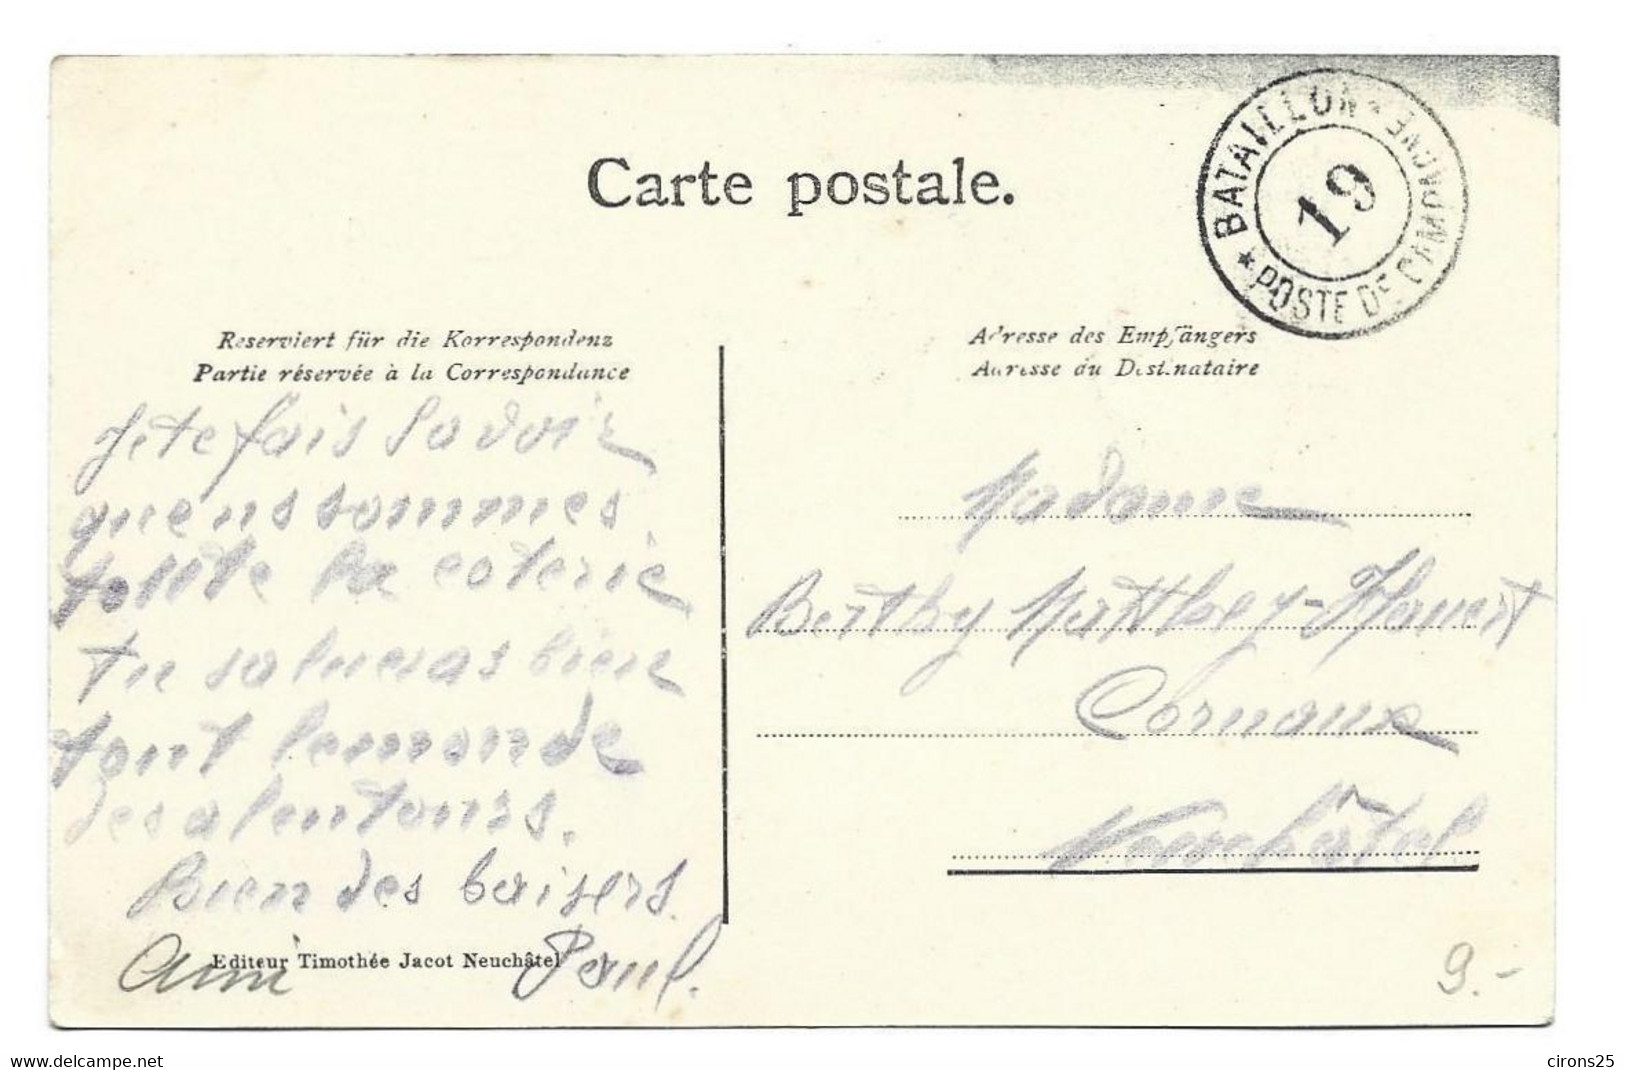 Carte postale.
BATAILLON * POSTE DE CAMPAGNE *
19
Reserviert für die Korrespondenz
Partie réservée à la Correspondance
Adresse des Empfängers
Adresse du Destinataire
Je te fais savoir
que ns sommes
toute la coterie
tu salueras bien
tout le monde
des alentours.
Bien des baisers.
Paul.
Editeur Timothée Jacot Neuchâtel
Madame
Berthy Matthey-
Cornaux
Neuchâtel
9.-
www.delcampe.net
cirons25